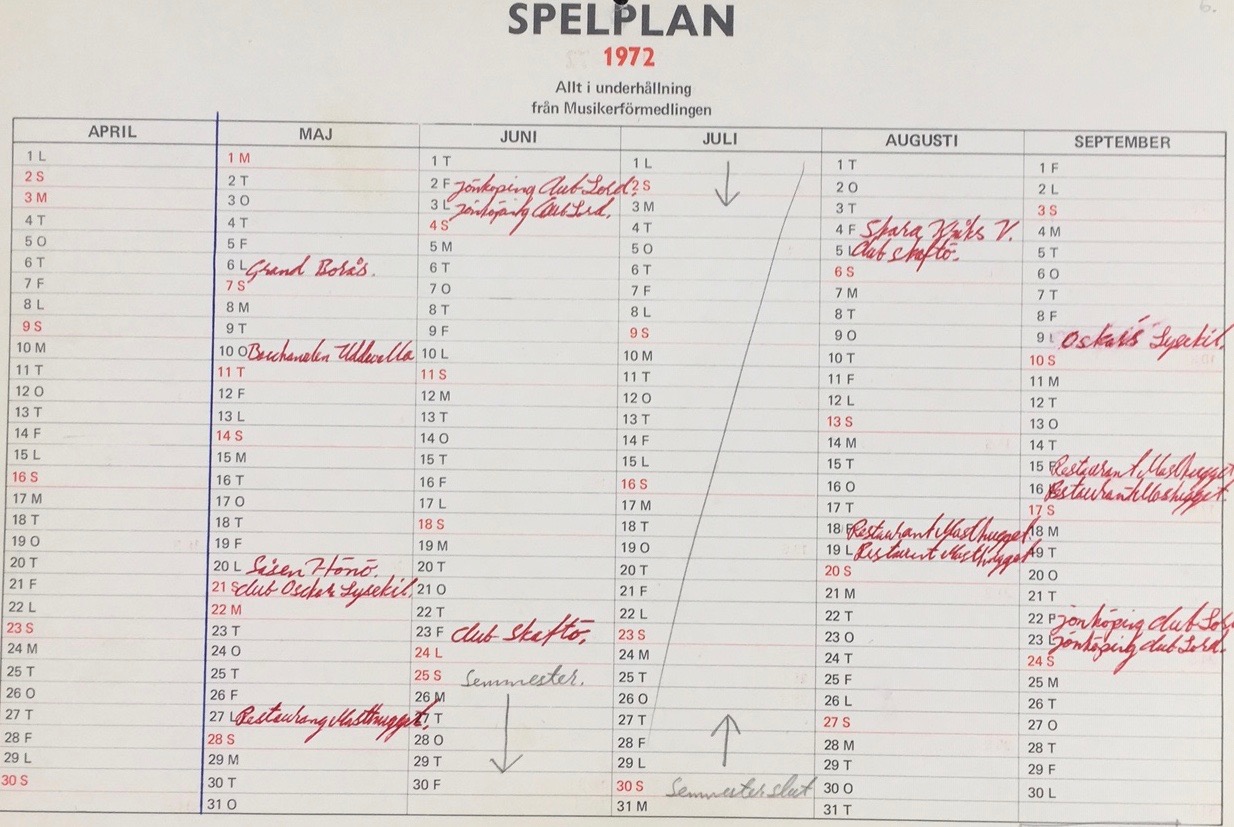 SPELPLAN
1972
Allt i underhållning
från Musikerförmedlingen
APRIL
1 L
2 S
3 M
4 T
5 O
6 T
7 F
8 L
9 S
10 M
11 T
12 O
13 T
14 F
15 L
16 S
17 M
18 T
19 O
20 T
21 F
22 L
23 S
24 M
25 T
26 O
27 T
28 F
29 L
30 S
MAJ
1 M
2 T
3 O
4 T
5 F
6 L Grand Borås.
7 S
8 M
9 T
10 O Bacchanalen Uddevalla
11 T
12 F
13 L
14 S
15 M
16 T
17 O
18 T
19 F
20 L Såsen Hönö.
21 S club Oscar Lysekil.
22 M
23 T
24 O
25 T
26 F
27 L Restaurang Masthugget.
28 S
29 M
30 T
31 O
JUNI
1 T
2 F Jönköping Club Lord.
3 L Jönköping Club Lord.
4 S
5 M
6 T
7 O
8 T
9 F
10 L
11 S
12 M
13 T
14 O
15 T
16 F
17 L
18 S
19 M
20 T
21 O
22 T
23 F club Skaftö.
24 L
25 S Semmester.
26 M
27 T
28 O
29 T
30 F
JULI
1 L
2 S
3 M
4 T
5 O
6 T
7 F
8 L
9 S
10 M
11 T
12 O
13 T
14 F
15 L
16 S
17 M
18 T
19 O
20 T
21 F
22 L
23 S
24 M
25 T
26 O
27 T
28 F
29 L
30 S Semmester slut
31 M
AUGUSTI
1 T
2 O
3 T
4 F Skara V.
5 L Club Skaftö.
6 S
7 M
8 T
9 O
10 T
11 F
12 L
13 S
14 M
15 T
16 O
17 T
18 F Restaurant Masthugget
19 L Restaurant Masthugget
20 S
21 M
22 T
23 O
24 T
25 F
26 L
27 S
28 M
29 T
30 O
31 T
SEPTEMBER
1 F
2 L
3 S
4 M
5 T
6 O
7 T
8 F
9 L Oskars Lysekil.
10 S
11 M
12 T
13 O
14 T
15 F Restaurant Masthugget
16 L Restaurant Masthugget.
17 S
18 M
19 T
20 O
21 T
22 F Jönköping club Lord
23 L Jönköping club Lord.
24 S
25 M
26 T
27 O
28 T
29 F
30 L
6.